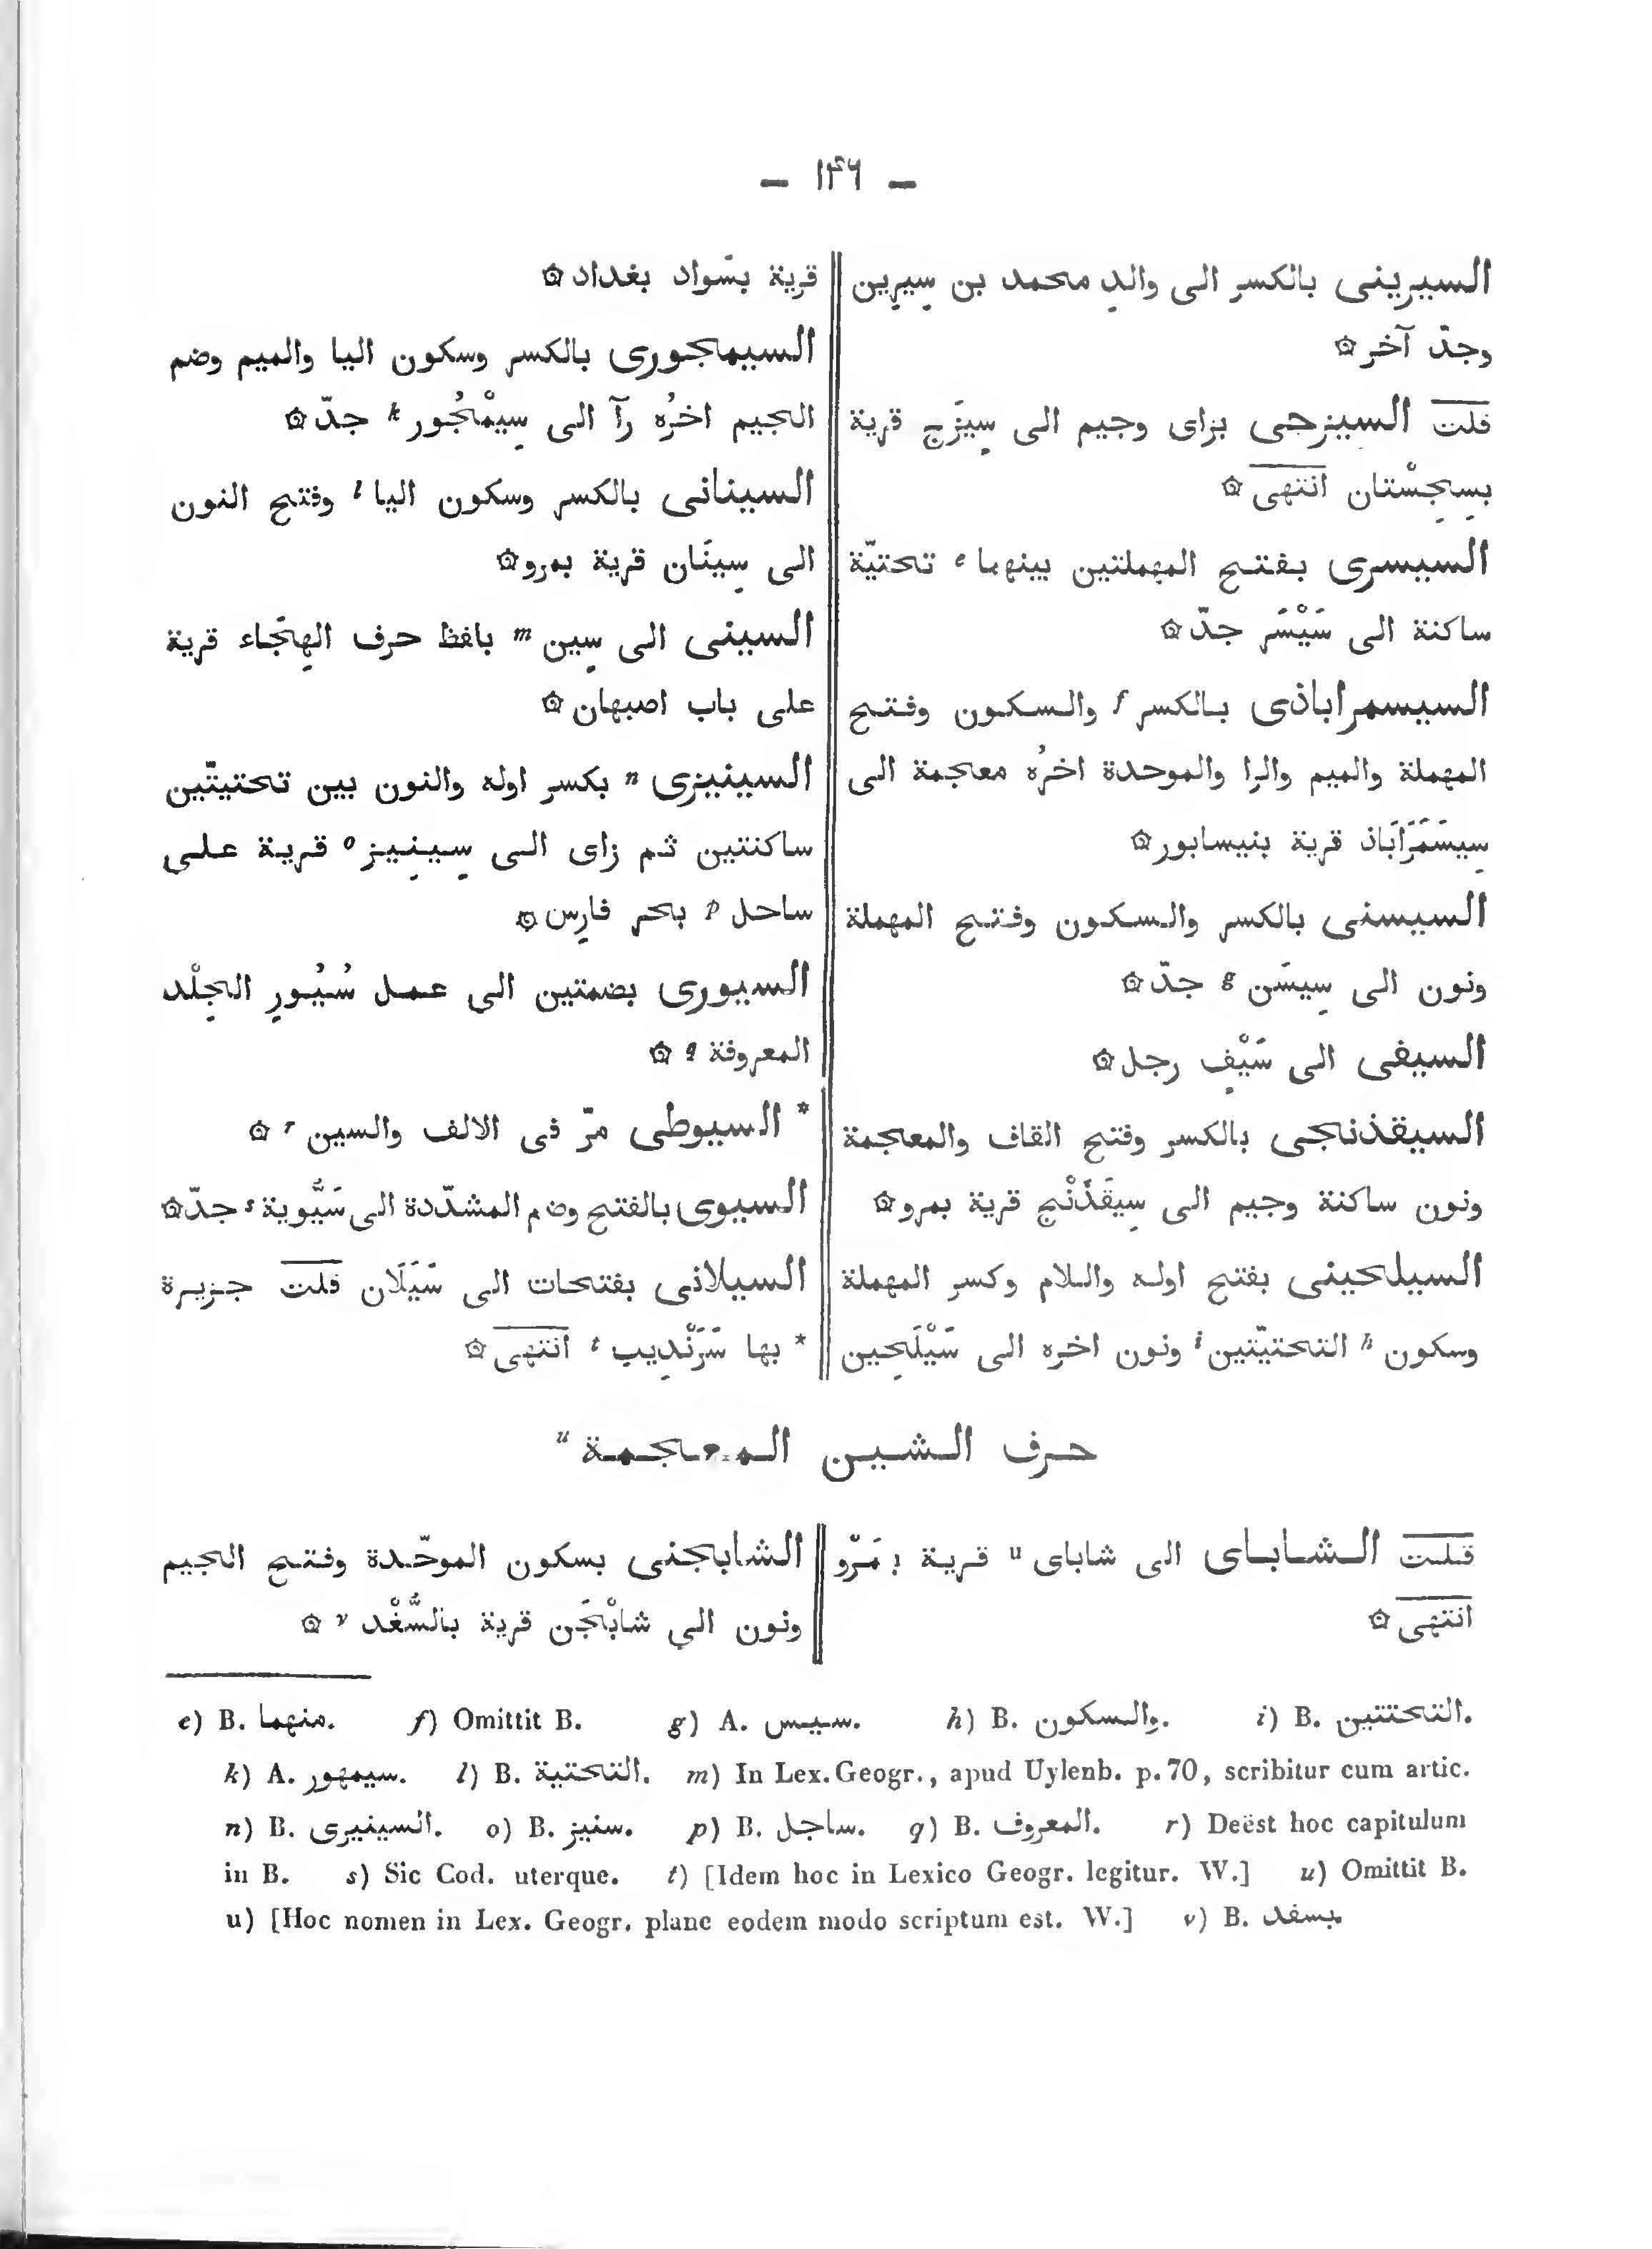 — ١٤٦ —
السيرينى بالكسر الى والدِ محمد بن سِيرِين
وجدّ آخر ۞
قلت السيزجى بزاى وجيم الى سِيزَج قرية
بسِجِسْتان انتهى ۞
السيسرى بفتح المهملتين بينهما e تحتيّة
ساكنة الى سَيْسَر جدّ ۞
السيسمراباذى بالكسر f والسكون وفتح
المهملة والميم والرا والموحدة اخرُه معجمة الى
سِيسَمَرَابَاذ قرية بنيسابور ۞
السيسنى بالكسر والسكون وفتح المهملة
ونون الى سِيسَن g جدّ ۞
السيفى الى سَيْفٍ رجل ۞
السيقذنجى بالكسر وفتح القاف والمعجمة
ونون ساكنة وجيم الى سِيقَذَنْج قرية بمرو ۞
السيلحينى بفتح اوله واللام وكسر المهملة
وسكون h التحتيّتين i ونون اخره الى سَيْلَحِين
قرية بسَواد بغداد ۞
السيمجورى بالكسر وسكون اليا والميم وضم
الجيم اخرُه رآ الى سِيمْجُور k جدّ ۞
السينانى بالكسر وسكون اليا l وفتح النون
الى سِينَان قرية بمرو ۞
السينى الى سِين m بلفظ حرف الهِجَاء قرية
على باب اصبهان ۞
السينيزى n بكسر اوله والنون بين تحتيتّين
ساكنتين ثم زاى الى سِينِيز o قرية على
ساحل p بحر فارِس ۞
السيورى بضمتين الى عمل سُيُورِ الجِلْد
المعروفة q ۞
* السيوطى مرّ فى الالف والسين r ۞
السيوى بالفتح وضم المشدّدة الى سَيُّوية s جدّ ۞
السيلانى بفتحات الى سَيَلَان قلت جزيرة
* بها سَرَنْدِيب t انتهى ۞
حرف الشين المعجمة u
قلت الشاباى الى شاباى u قرية بمَرْو
انتهى ۞
الشابجنى بسكون الموحّدة وفتح الجيم
ونون الى شابْجَن قرية بالسُّغْد v ۞
e) B. منهما. f) Omittit B. g) A. سيس. h) B. والسكون. i) B. التحتتين.
k) A. سيمهور. l) B. التحتية. m) In Lex. Geogr., apud Uylenb. p. 70, scribitur cum artic.
n) B. السينيرى. o) B. سنيز. p) B. ساجل. q) B. المعروف. r) Deëst hoc capitulum
in B. s) Sic Cod. uterque. t) [Idem hoc in Lexico Geogr. legitur. W.] u) Omittit B.
u) [Hoc nomen in Lex. Geogr. plane eodem modo scriptum est. W.] v) B. بسفد